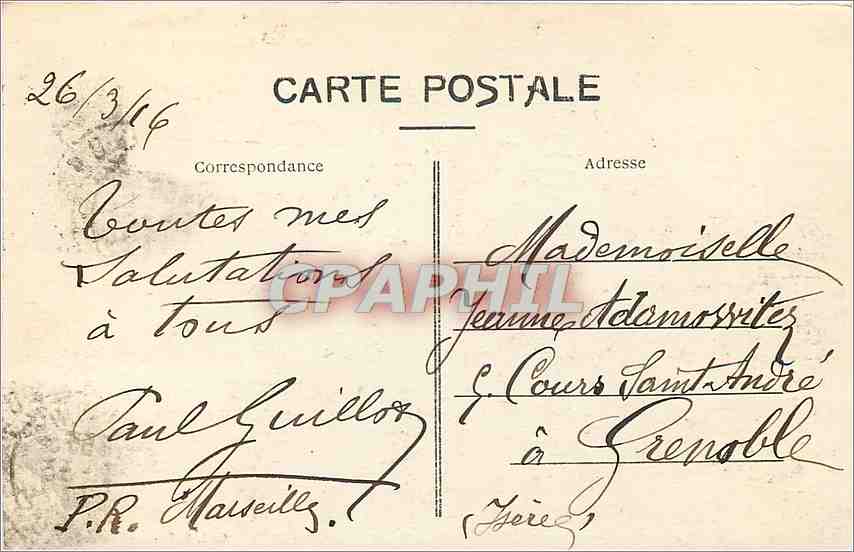 26/3/16
CARTE POSTALE
Correspondance
Adresse
Toutes mes
Salutations
à tous
Paul Guillot
P.R. Marseille.
Mademoiselle
Jeanne
Cours Saint-André
à Grenoble
(Isère)
CPAPHIL